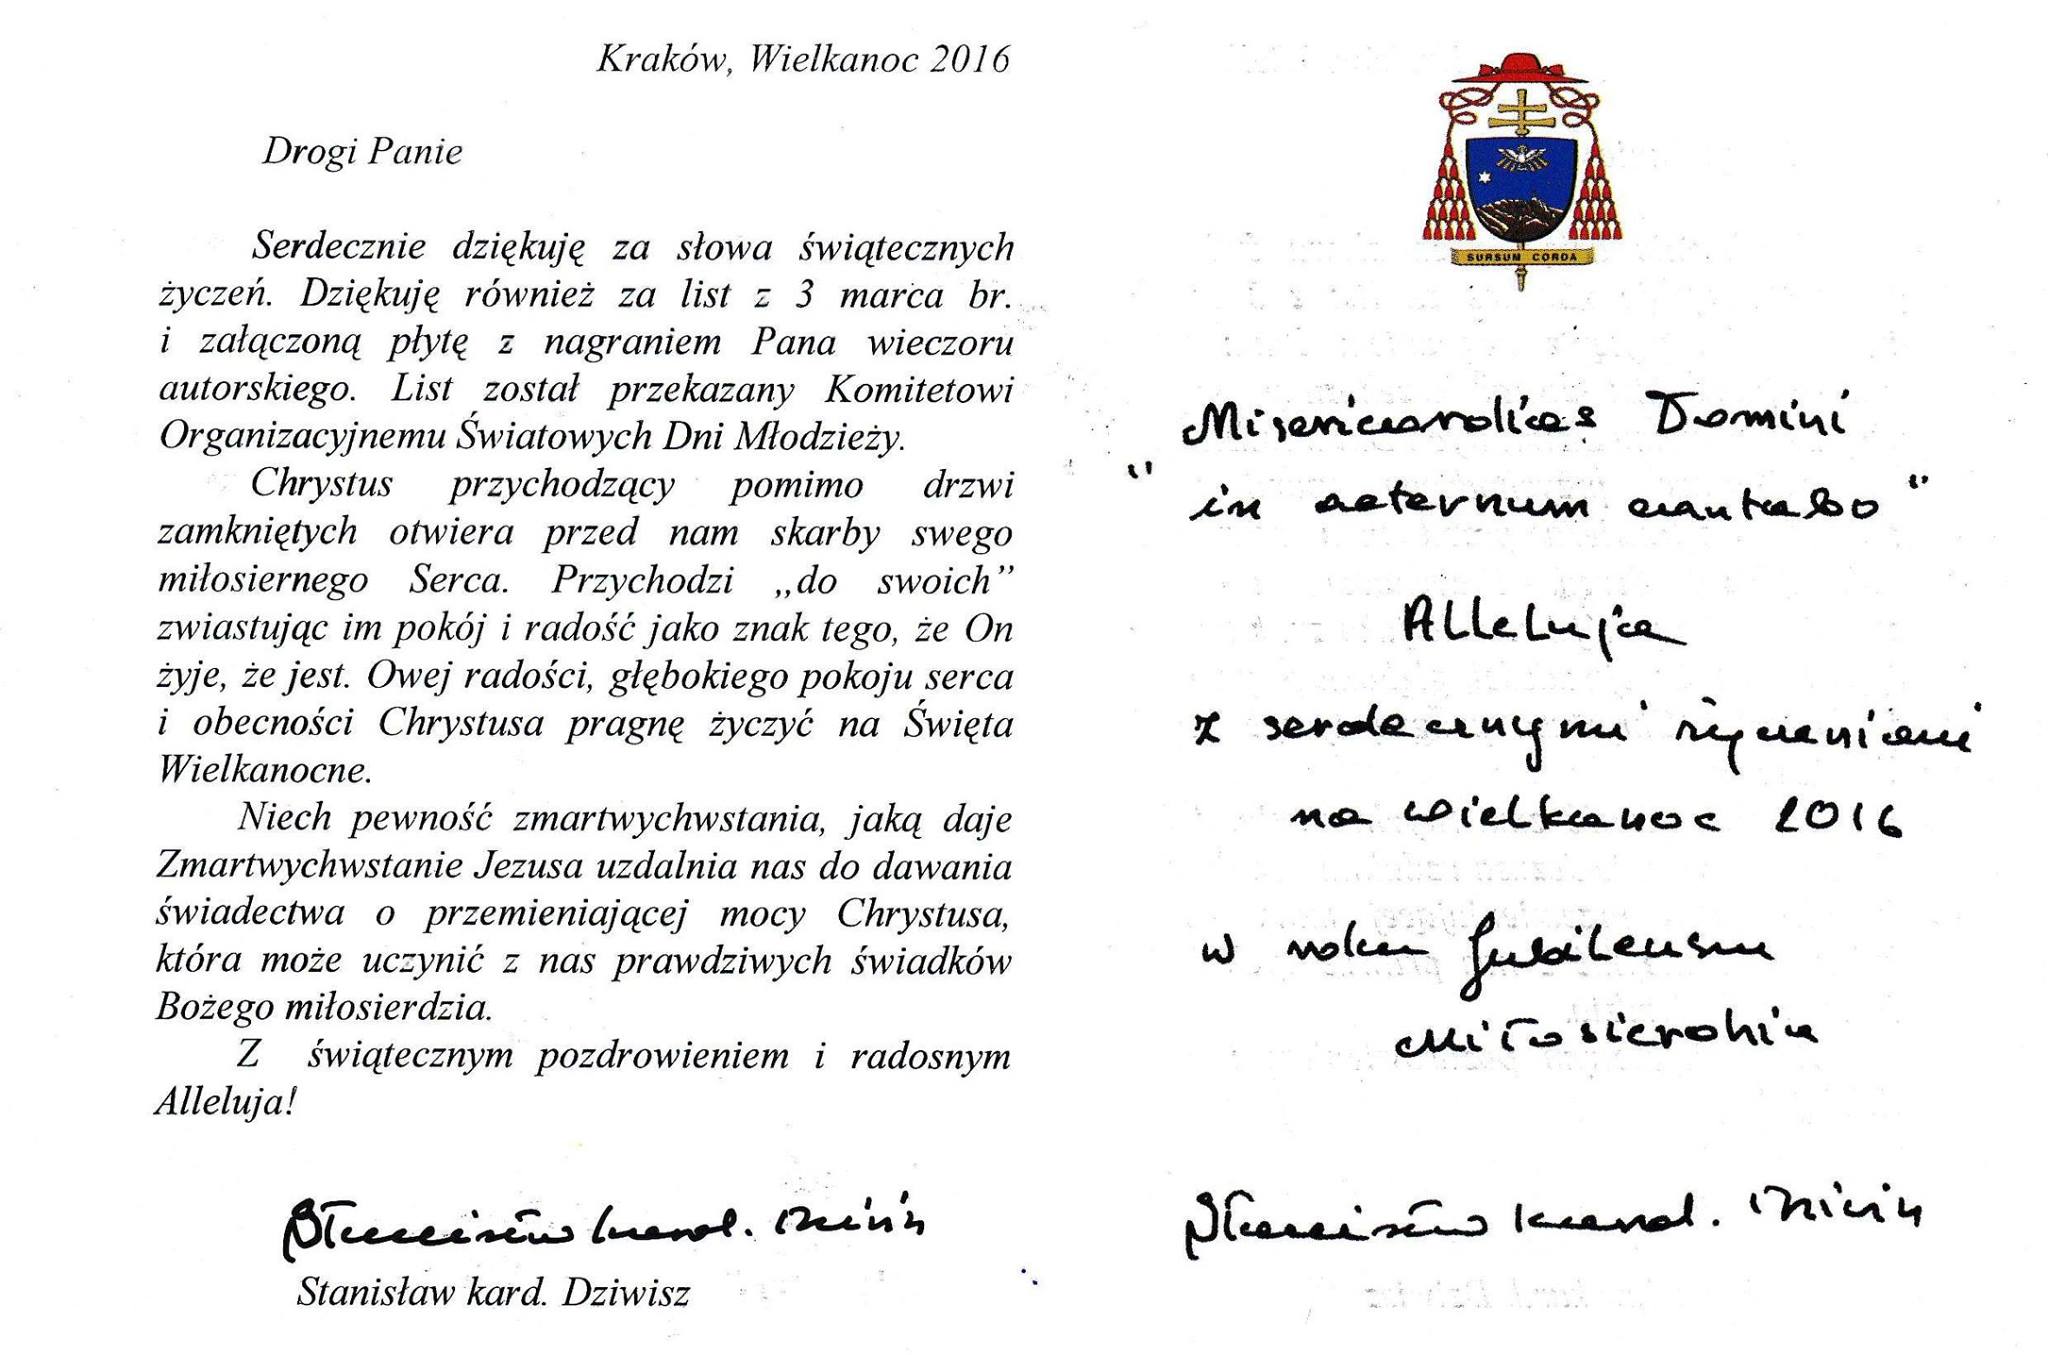 Kraków, Wielkanoc 2016
Drogi Panie
Serdecznie dziękuję za słowa świątecznych
życzeń. Dziękuję również za list z 3 marca br.
i załączoną płytę z nagraniem Pana wieczoru
autorskiego. List został przekazany Komitetowi
Organizacyjnemu Światowych Dni Młodzieży.
Chrystus przychodzący pomimo drzwi
zamkniętych otwiera przed nam skarby swego
miłosiernego Serca. Przychodzi „do swoich”
zwiastując im pokój i radość jako znak tego, że On
żyje, że jest. Owej radości, głębokiego pokoju serca
i obecności Chrystusa pragnę życzyć na Święta
Wielkanocne.
Niech pewność zmartwychwstania, jaką daje
Zmartwychwstanie Jezusa uzdalnia nas do dawania
świadectwa o przemieniającej mocy Chrystusa,
która może uczynić z nas prawdziwych świadków
Bożego miłosierdzia.
Z świątecznym pozdrowieniem i radosnym
Alleluja!
Stanisław kard. Dziwisz
Stanisław kard. Dziwisz
SURSUM CORDA
Misericordias Domini
"in aeternum cantabo"
Alleluja
z serdecznymi życzeniami
na Wielkanoc 2016
w roku Jubileuszu
Miłosierdzia
Stanisław kard. Dziwisz